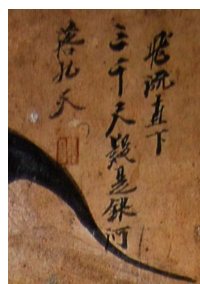 飛流直下
三千尺疑是銀河
落九天